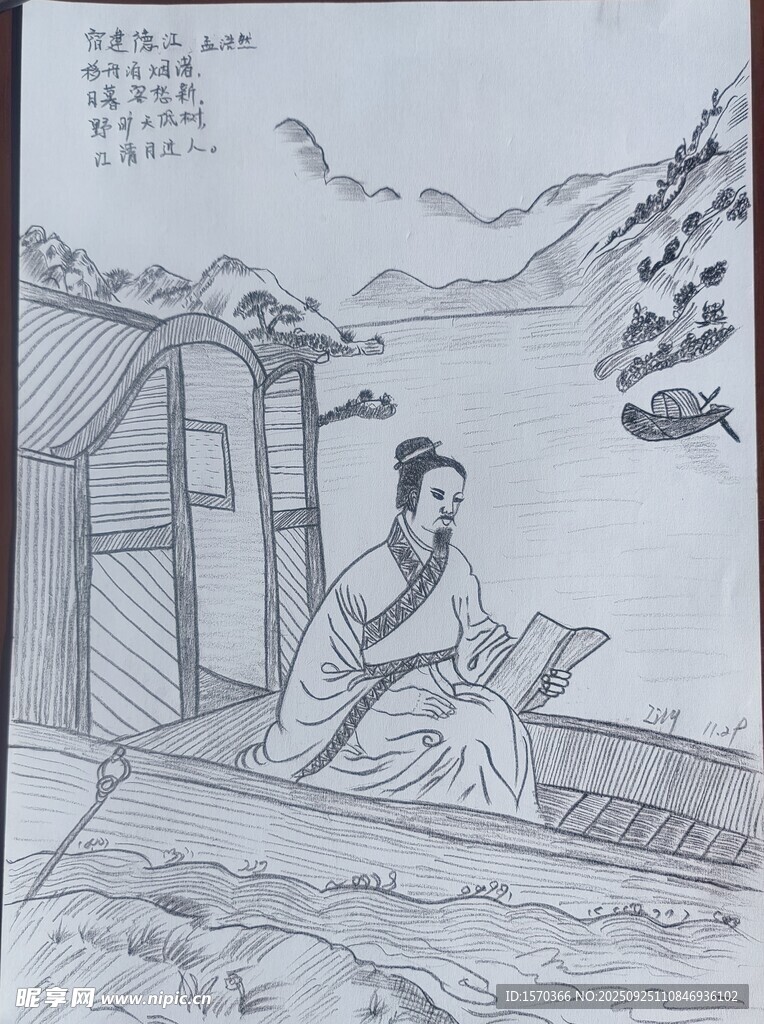 宿建德江 孟浩然
移舟泊烟渚,
日暮客愁新。
野旷天低树,
江清月近人。
Lily 11.29
昵享网 www.nipic.cn
ID:1570366 NO:20250925110846936102